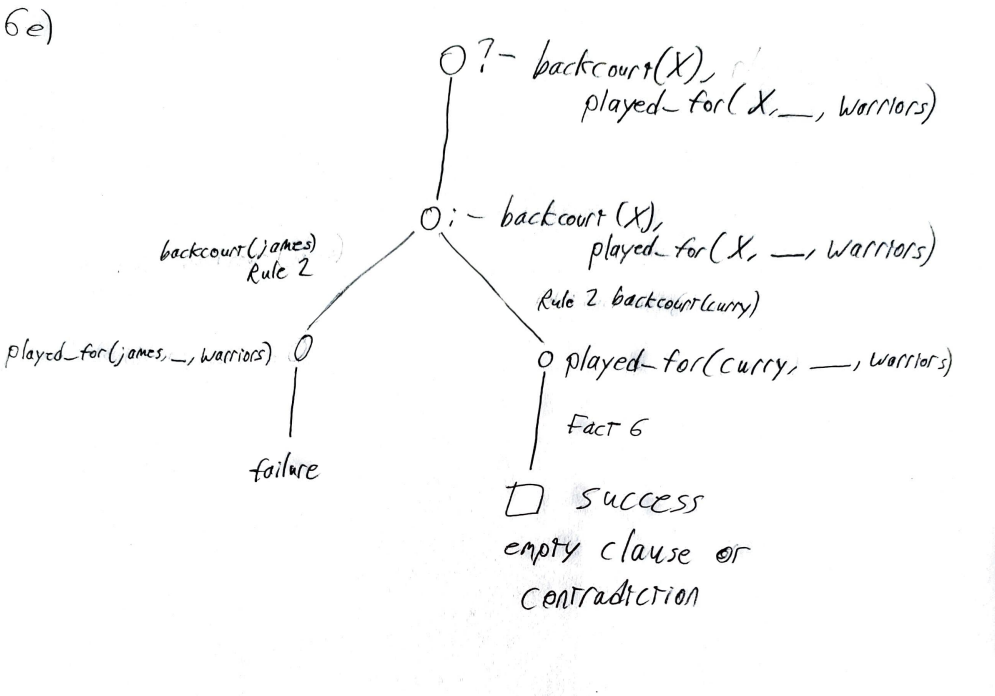 6e)
?- backcourt(X),
played_for(X,__, warriors)
:- backcourt (X),
played_for(X, __, warriors)
backcourt(james)
Rule 2
Rule 2 backcourt(curry)
played_for(james,_, warriors)
played_for(curry, __, warriors)
Fact 6
failure
success
empty clause or
contradiction